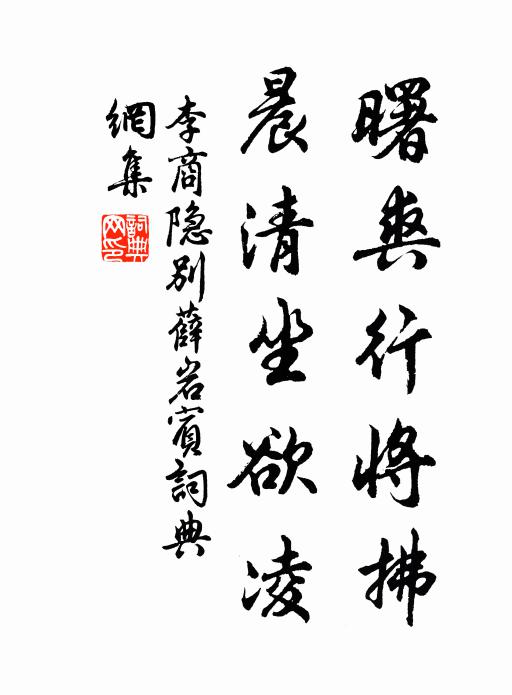 曙爽行将拂
晨清坐欲凌
李商隐别薛岩宾詞典
網集
詞典网印